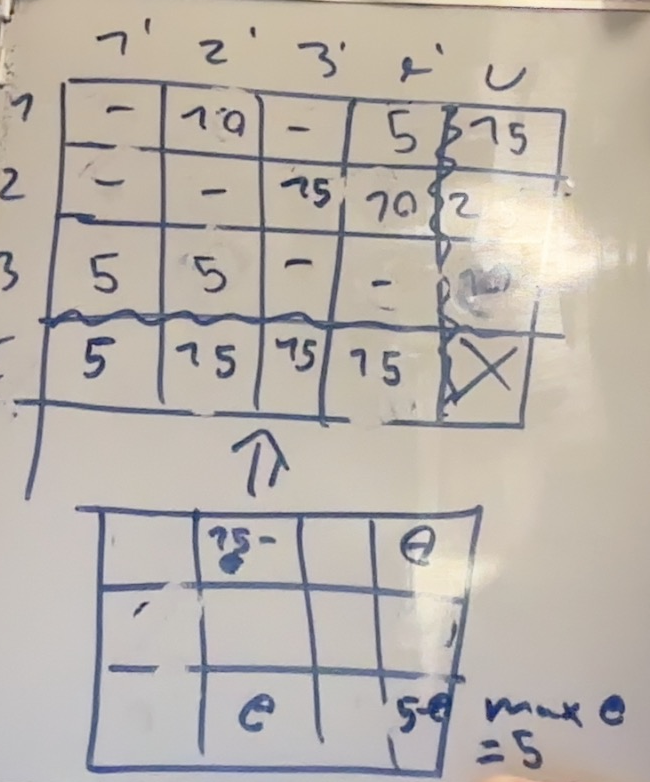 1' 2' 3' 4'
1 - 10 - 5 15
2 - - 15 10 2
3 5 5 - -
5 15 15 15 X
⇑
15- θ
θ 5-θ max θ
= 5